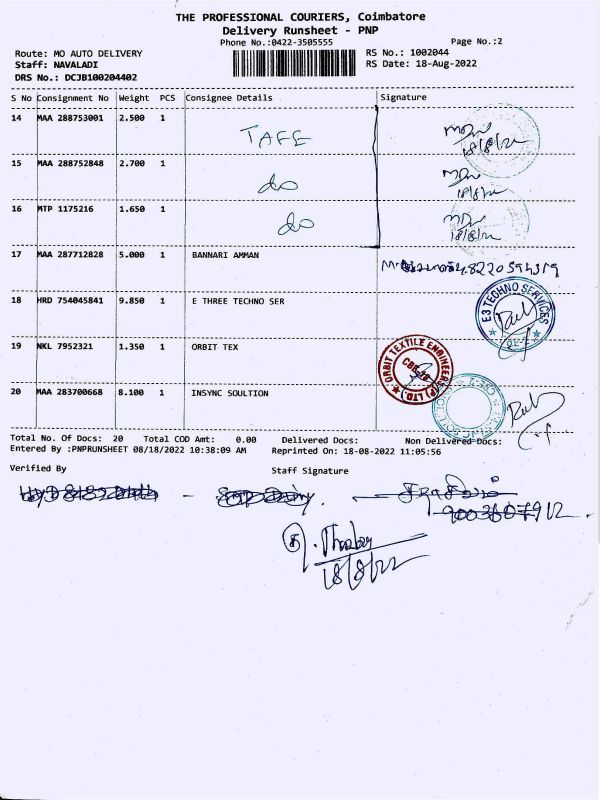 THE PROFESSIONAL COURIERS, Coimbatore
Delivery Runsheet - PNP
Phone No.:0422-3505555
Page No.:2
Route: MO AUTO DELIVERY
RS No.: 1002044
Staff: NAVALADI
RS Date: 18-Aug-2022
DRS No.: DCJB100204402
S No Consignment No Weight PCS Consignee Details Signature
14 MAA 288753001 2.500 1 TAFE
18/8/22
15 MAA 288752848 2.700 1 do
18/8/22
16 MTP 1175216 1.650 1 do
18/8/22
17 MAA 287712828 5.000 1 BANNARI AMMAN
18 HRD 754045841 9.850 1 E THREE TECHNO SER
E3 TECHNO SERVICES
19 NKL 7952321 1.350 1 ORBIT TEX
ORBIT TEXTILE ENGINEER (P) LTD.
20 MAA 283700668 8.100 1 INSYNC SOULTION
Total No. Of Docs: 20 Total COD Amt: 0.00 Delivered Docs: Non Delivered Docs:
Entered By :PNPRUNSHEET 08/18/2022 10:38:09 AM Reprinted On: 18-08-2022 11:05:56
Verified By Staff Signature
18/8/22